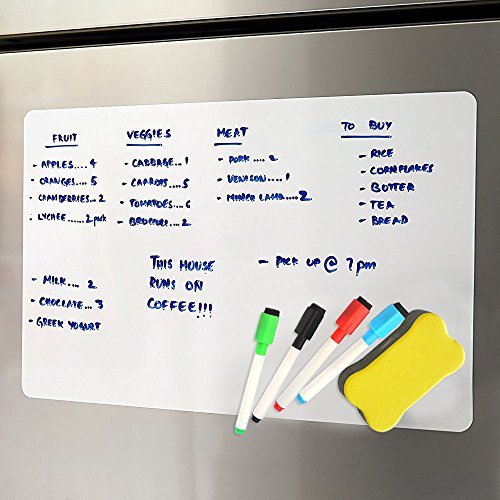 FRUIT
- APPLES....4
- ORANGES....5
- CRANBERRIES...2
- LYCHEE......2 punk
VEGGIES
- CABBAGE...1
- CARROTS....5
- TOMATOES...6
- BROCCOLI...2
MEAT
- PORK....2
- VENISON....1
- MINCED LAMB....2
TO BUY
- RICE
- CORNFLAKES
- BUTTER
- TEA
- BREAD
- MILK... 2
- CHOCLATE...3
- GREEK YOGURT
THIS HOUSE
RUNS ON
COFFEE!!!
- PICK UP @ 7pm